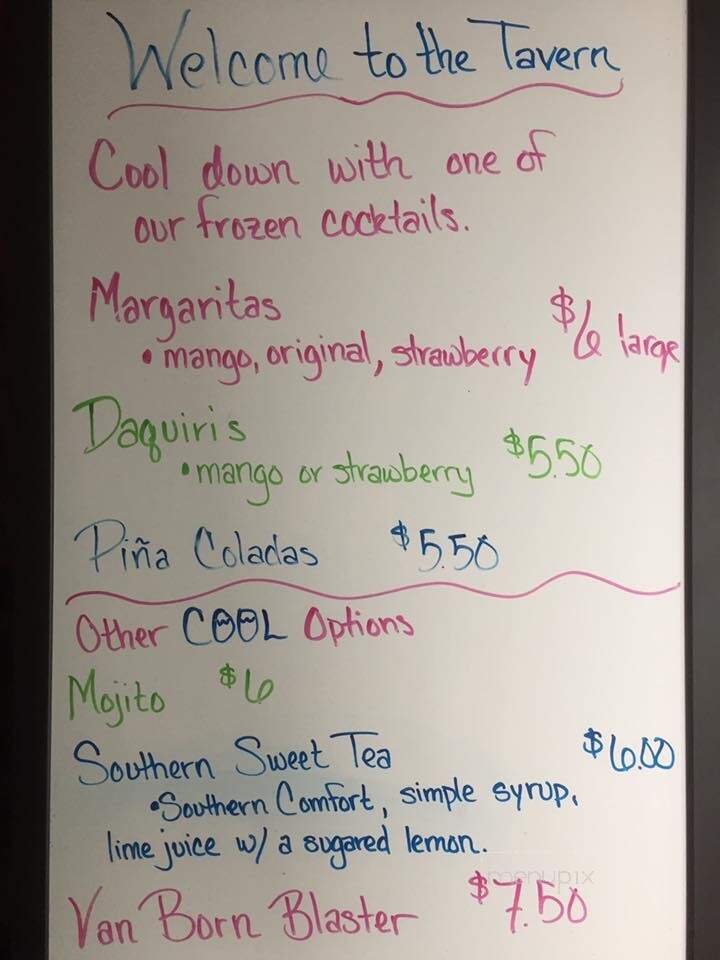 Welcome to the Tavern
Cool down with one of
our frozen cocktails.
Margaritas
• mango, original, strawberry $6 large
Daquiris
• mango or strawberry $5.50
Piña Coladas $5.50
Other COOL Options
Mojito $6
Southern Sweet Tea $6.00
• Southern Comfort, simple syrup,
lime juice w/ a sugared lemon.
menupix
Van Born Blaster $7.50